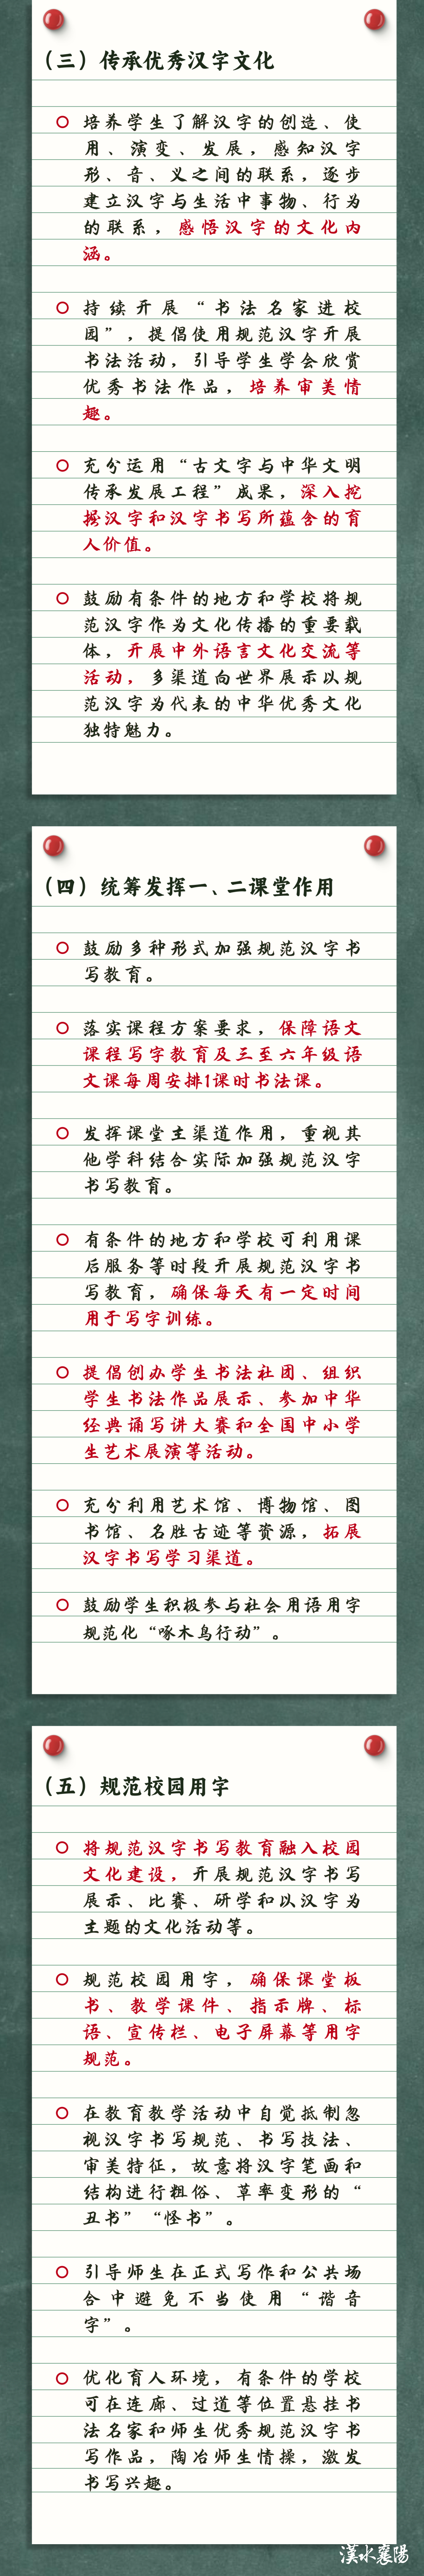 （三）传承优秀汉字文化
培养学生了解汉字的创造、使
用、演变、发展，感知汉字
形、音、义之间的联系，逐步
建立汉字与生活中事物、行为
的联系，感悟汉字的文化内
涵。
持续开展“书法名家进校
园”，提倡使用规范汉字开展
书法活动，引导学生学会欣赏
优秀书法作品，培养审美情
趣。
充分运用“古文字与中华文明
传承发展工程”成果，深入挖
掘汉字和汉字书写所蕴含的育
人价值。
鼓励有条件的地方和学校将规
范汉字作为文化传播的重要载
体，开展中外语言文化交流等
活动，多渠道向世界展示以规
范汉字为代表的中华优秀文化
独特魅力。
（四）统筹发挥一、二课堂作用
鼓励多种形式加强规范汉字书
写教育。
落实课程方案要求，保障语文
课程写字教育及三至六年级语
文课每周安排1课时书法课。
发挥课堂主渠道作用，重视其
他学科结合实际加强规范汉字
书写教育。
有条件的地方和学校可利用课
后服务等时段开展规范汉字书
写教育，确保每天有一定时间
用于写字训练。
提倡创办学生书法社团、组织
学生书法作品展示、参加中华
经典诵写讲大赛和全国中小学
生艺术展演等活动。
充分利用艺术馆、博物馆、图
书馆、名胜古迹等资源，拓展
汉字书写学习渠道。
鼓励学生积极参与社会用语用字
规范化“啄木鸟行动”。
（五）规范校园用字
将规范汉字书写教育融入校园
文化建设，开展规范汉字书写
展示、比赛、研学和以汉字为
主题的文化活动等。
规范校园用字，确保课堂板
书、教学课件、指示牌、标
语、宣传栏、电子屏幕等用字
规范。
在教育教学活动中自觉抵制忽
视汉字书写规范、书写技法、
审美特征，故意将汉字笔画和
结构进行粗俗、草率变形的“
丑书”“怪书”。
引导师生在正式写作和公共场
合中避免不当使用“谐音
字”。
优化育人环境，有条件的学校
可在连廊、过道等位置悬挂书
法名家和师生优秀规范汉字书
写作品，陶冶师生情操，激发
书写兴趣。
漢水襄陽